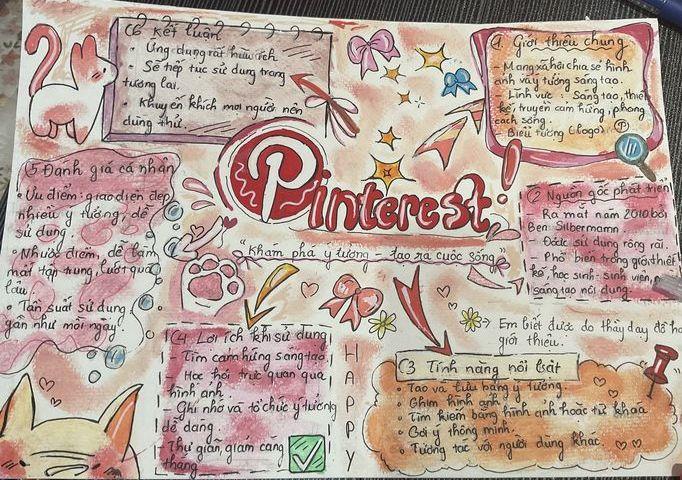 Pinterest
"Khám phá ý tưởng – tạo ra cuộc sống"
① Giới thiệu chung
- Mạng xã hội chia sẻ hình
ảnh và ý tưởng sáng tạo
- Lĩnh vực: Sáng tạo, thiết
kế, truyền cảm hứng, phong
cách sống.
- Biểu tượng (logo) P
② Nguồn gốc phát triển
Ra mắt năm 2010 bởi
Ben Silbermann
Được sử dụng rộng rãi.
Phổ biến trong giới thiết
kế, học sinh - sinh viên,
sáng tạo nội dung.
→ Em biết được do thầy dạy
giới thiệu.
③ Tính năng nổi bật
• Tạo và lưu bảng ý tưởng.
• Ghim hình ảnh
• Tìm kiếm bằng hình ảnh hoặc từ khóa
• Gợi ý thông minh.
• Tương tác với người dùng khác.
④ Lợi ích khi sử dụng
- Tìm cảm hứng sáng tạo
- Học hỏi trực quan qua
hình ảnh.
- Ghi nhớ và tổ chức ý tưởng
dễ dàng.
- Thư giãn, giảm căng
thẳng
HAPPY
⑤ Đánh giá cá nhân
• Ưu điểm: giao diện đẹp
nhiều ý tưởng, dễ
sử dụng.
• Nhược điểm, dễ làm
mất tập trung, lướt quá
lâu.
• Tần suất sử dụng
gần như mỗi ngày
⑥ Kết luận
• Ứng dụng rất hữu ích
• Sẽ tiếp tục sử dụng trong
tương lai.
• Khuyến khích mọi người nên
dùng thử.